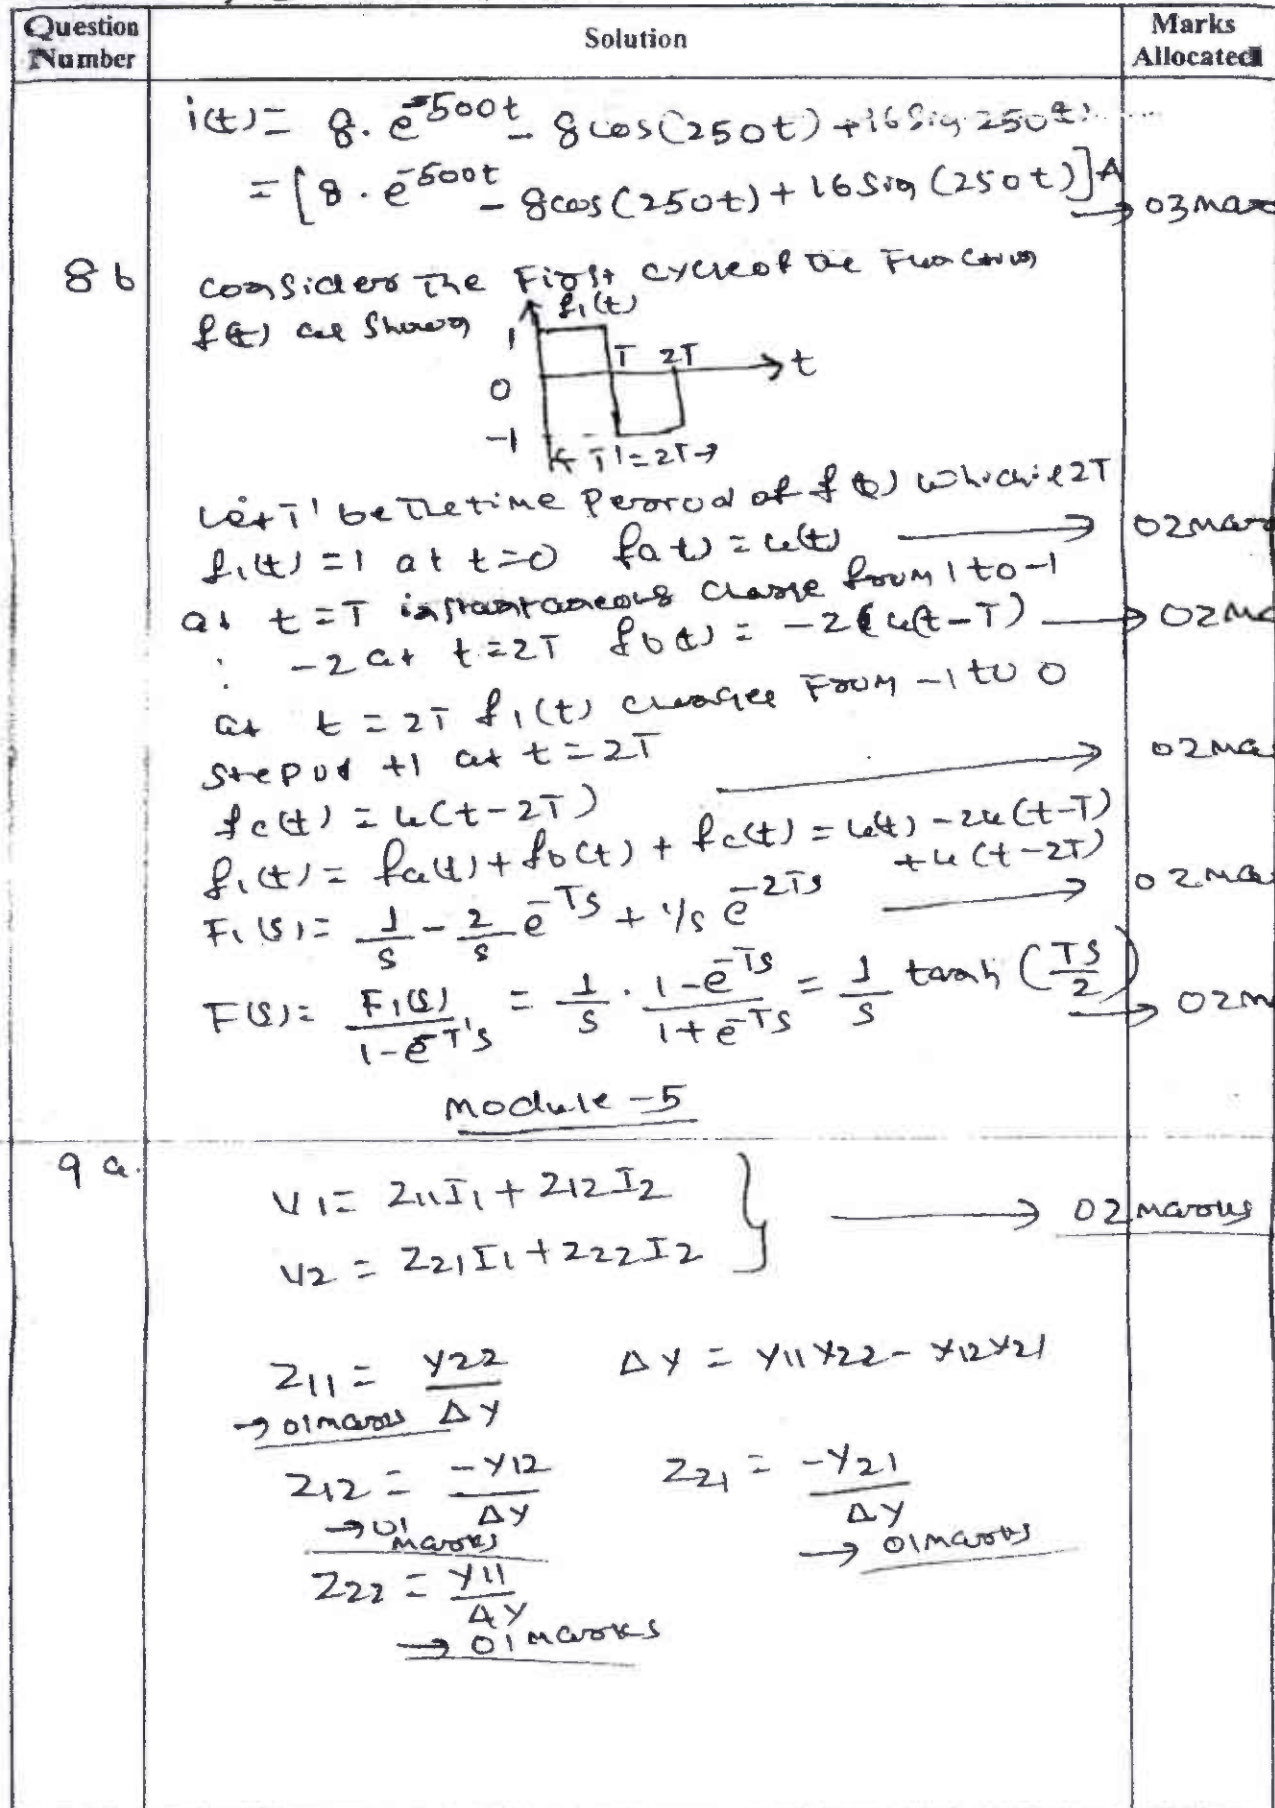 Question Number Solution Marks Allocated
i(t) = 8. e^-500t - 8 cos(250t) + 16 Sin 250t.
= [8. e^-500t - 8cos(250t) + 16 Sin (250t)] A → 03 mar
8 b Consider The First cycle of the Function
f(t) as Shown f1(t)
1 T 2T → t
0
-1
T' = 2T →
Let T' be The time Period of f(t) which is 2T
f1(t) = 1 at t=0 fa t) = u(t) → 02 mar
at t=T instantaneous change from 1 to -1
∴ -2 at t=2T fb(t) = -2(u(t-T) → 02 Ma
at t = 2T f1(t) changes From -1 to 0
Step of +1 at t=2T → 02 Ma
fc(t) = u(t-2T)
f1(t) = fa(t) + fb(t) + fc(t) = u(t) - 2u(t-T)
+ u(t-2T)
F1(s) = 1/s - 2/s e^-Ts + 1/s e^-2Ts → 02 Ma
F(s) = F1(s)/(1-e^-T's) = 1/s . (1-e^-Ts)/(1+e^-Ts) = 1/s tanh (Ts/2) → 02 m
Module -5
9 a.
V1 = Z11I1 + Z12I2
→ 02 marks
V2 = Z21I1 + Z22I2
Z11 = Y22/ΔY ΔY = Y11Y22 - Y12Y21
→ 01 marks
Z12 = -Y12/ΔY Z21 = -Y21/ΔY
→ 01 marks → 01 marks
Z22 = Y11/ΔY
→ 01 marks